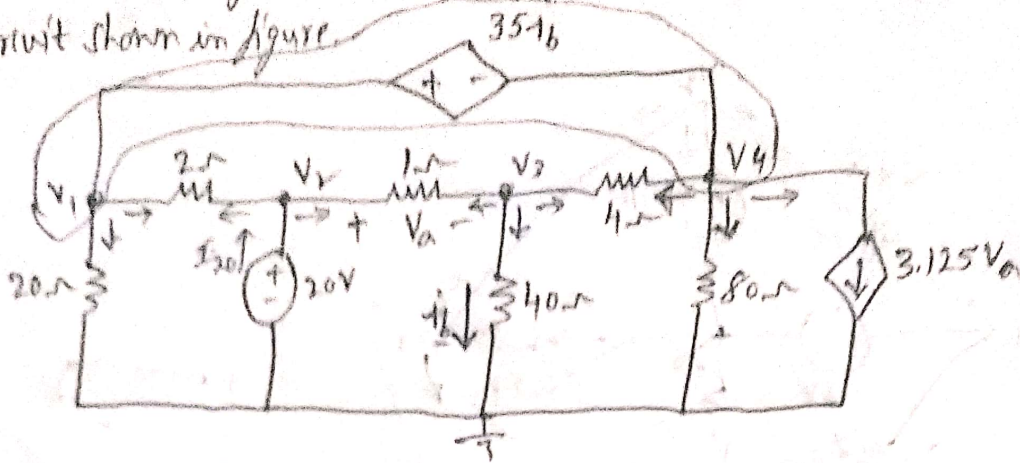 shown in figure.
35ib
+ -
2Ω
1Ω
V1
V2
V3
V4
+ Va -
4Ω
20Ω
I20
+
-
20V
ib
40Ω
80Ω
3.125Va